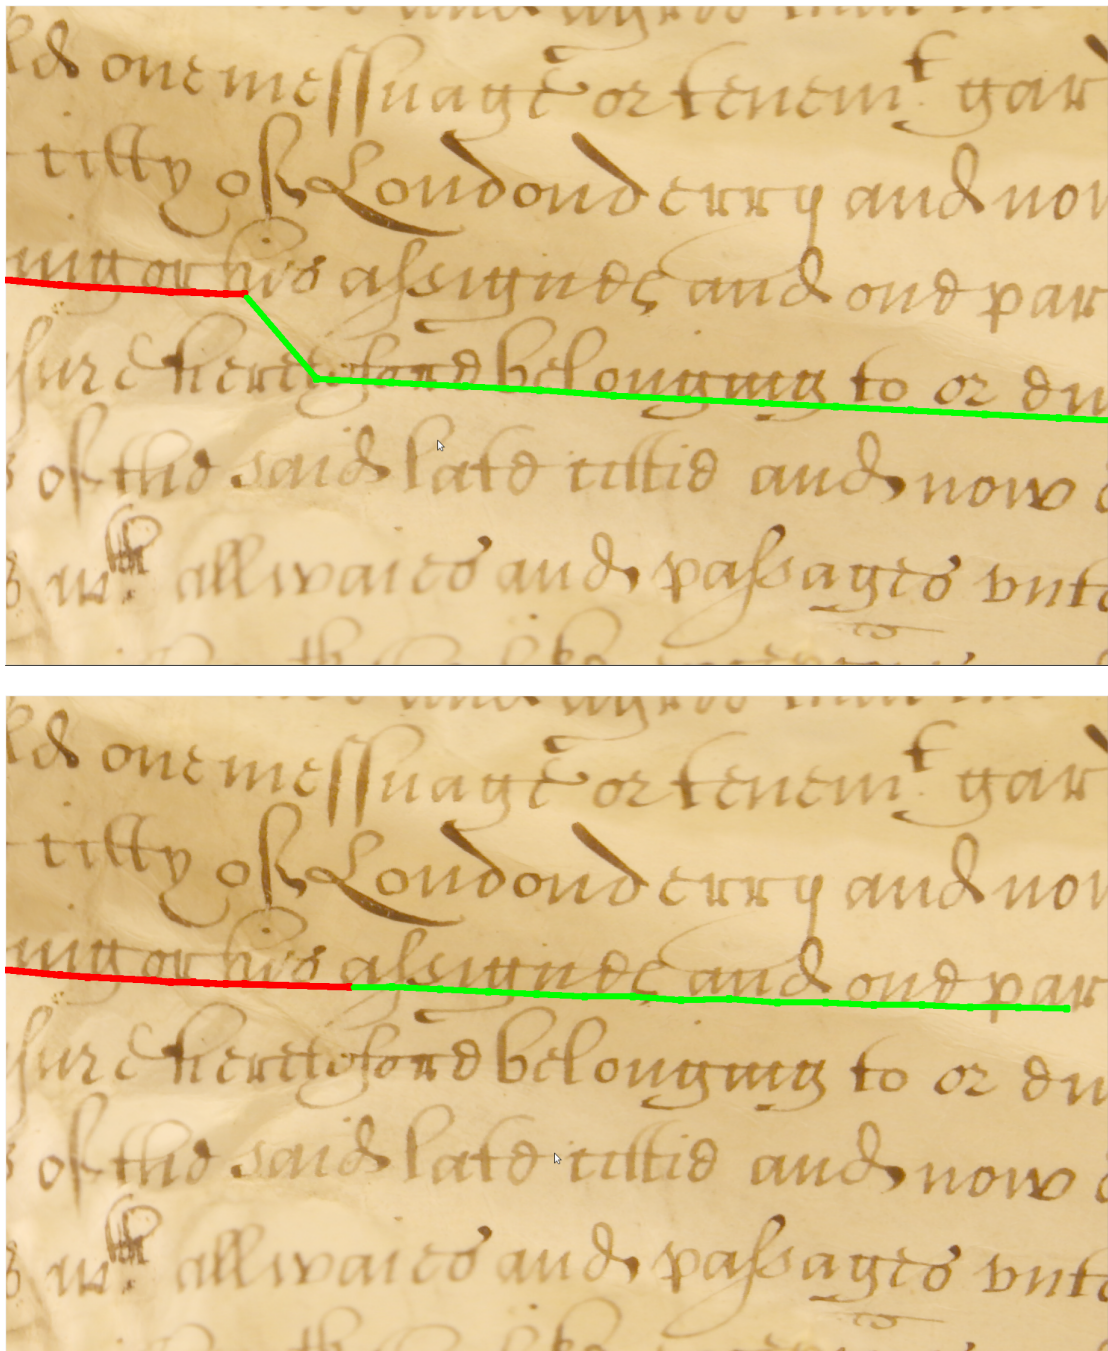 one messuage or tenemt. gar
citty of Londonderry and now
ing or his assignes and one par
sure heretofore belonging to or du
of the said late cittie and now
wth: all waies and passages vnto
one messuage or tenemt. gar
citty of Londonderry and now
ing or his assignes and one par
sure heretofore belonging to or du
of the said late cittie and now
wth: all waies and passages vnto